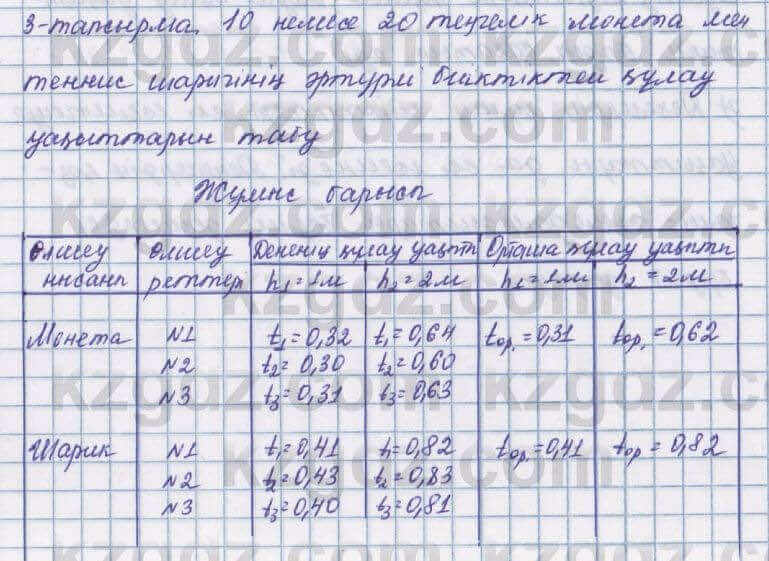 3-тапсырма. 10 немесе 20 теңгелік монета мен
теннис шаригінің әртүрлі биіктіктен құлау
уақыттарын табу
Жұмыс барысы
Өлшеу нысаны | Өлшеу реттері | Дененің құлау уақыты | Орташа құлау уақыты
h₁=1м | h₂=2м | h₁=1м | h₂=2м
Монета | N1 | t₁=0,32 | t₁=0,64 | tор.=0,31 | tор.=0,62
N2 | t₂=0,30 | t₂=0,60
N3 | t₃=0,31 | t₃=0,63
Шарик | N1 | t₁=0,41 | t₁=0,82 | tор.=0,41 | tор=0,82
N2 | t₂=0,43 | t₂=0,83
N3 | t₃=0,40 | t₃=0,81
kzgdz.com